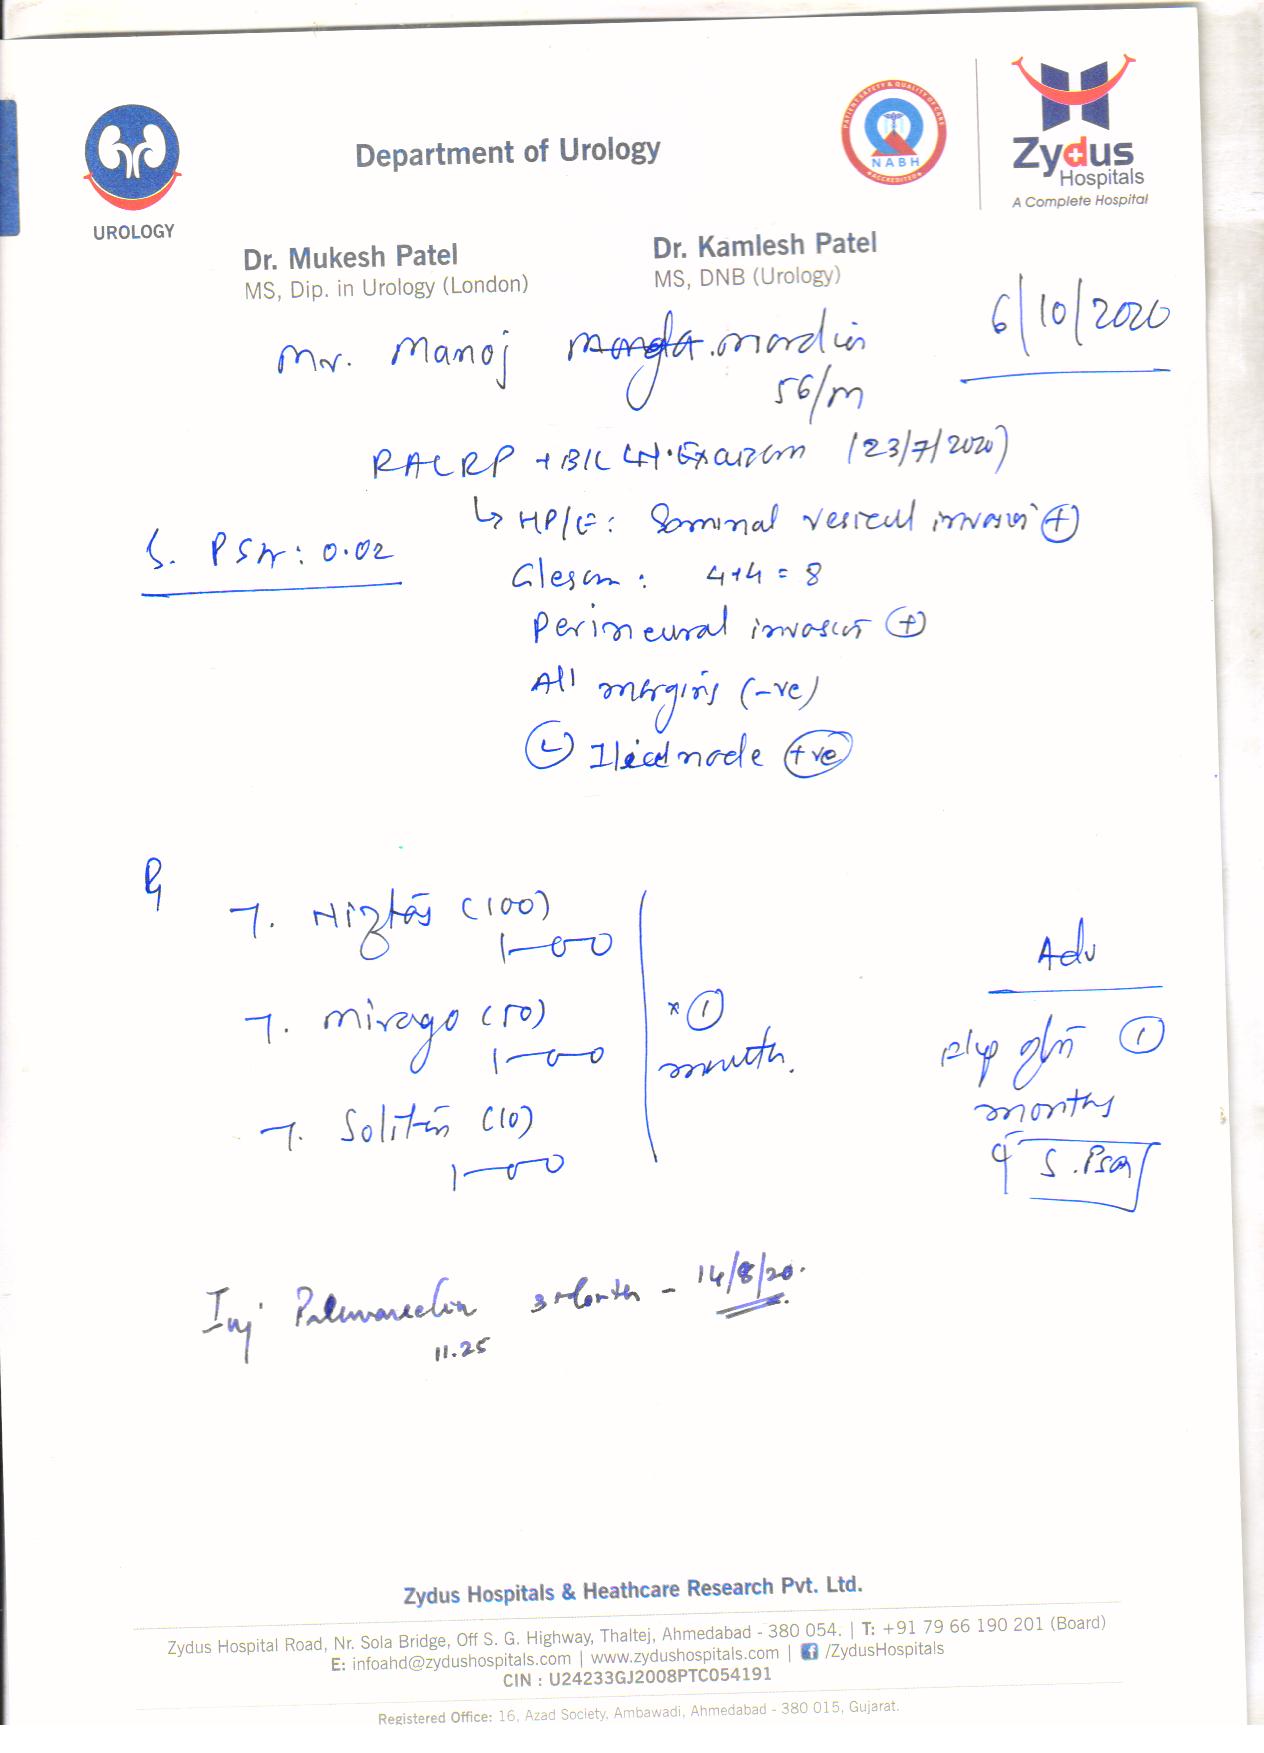 UROLOGY
Department of Urology
PATIENT SAFETY & QUALITY OF CARE
NABH
ACCREDITED
Zydus
Hospitals
A Complete Hospital
Dr. Mukesh Patel
MS, Dip. in Urology (London)
Dr. Kamlesh Patel
MS, DNB (Urology)
6/10/2020
Mr. Manoj
56/m
RALRP + B/L LN. (23/7/2020)
↳ HP/E: Seminal +
S. PSA: 0.02
: 4+4 = 8
Perineural +
All margins (-ve)
L node +ve
T. (100)
1-0-0
T. Mirago (50)
1-0-0
T. Soliten (10)
1-0-0
* 1
month.
Adv
1
months
S. PSA
Inj 3 Month - 14/8/20.
11.25
Zydus Hospitals & Heathcare Research Pvt. Ltd.
Zydus Hospital Road, Nr. Sola Bridge, Off S. G. Highway, Thaltej, Ahmedabad - 380 054. | T: +91 79 66 190 201 (Board)
E: infoahd@zydushospitals.com | www.zydushospitals.com | /ZydusHospitals
CIN : U24233GJ2008PTC054191
Registered Office: 16, Azad Society, Ambawadi, Ahmedabad - 380 015, Gujarat.